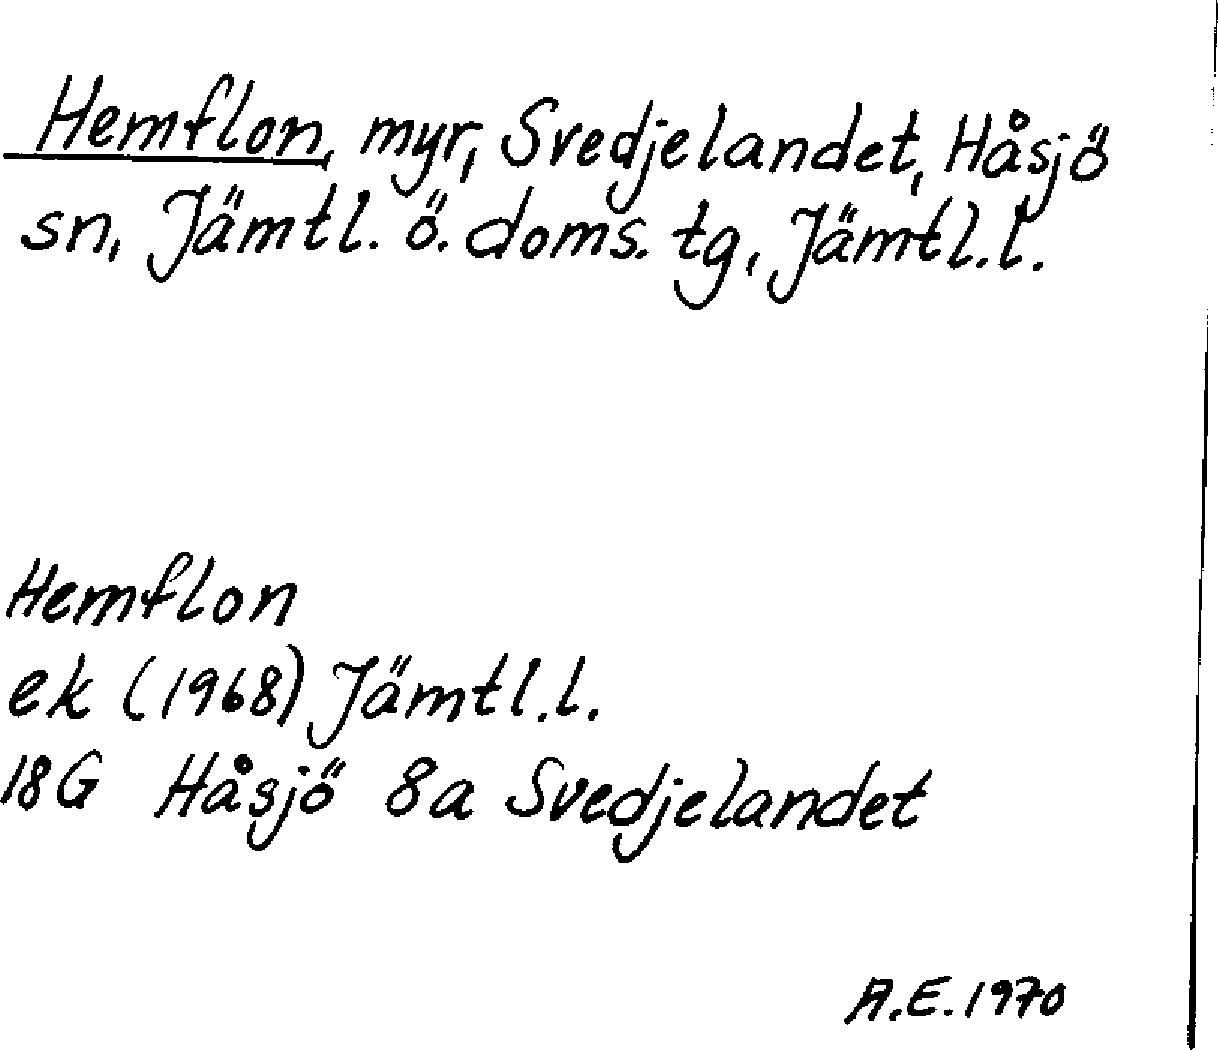 Hemflon, myr, Svedjelandet, Håsjö
sn, Jämtl. ö. doms. tg, Jämtl.l.
Hemflon
ek (1968) Jämtl.l.
18G Håsjö 8a Svedjelandet
A.E. 1970